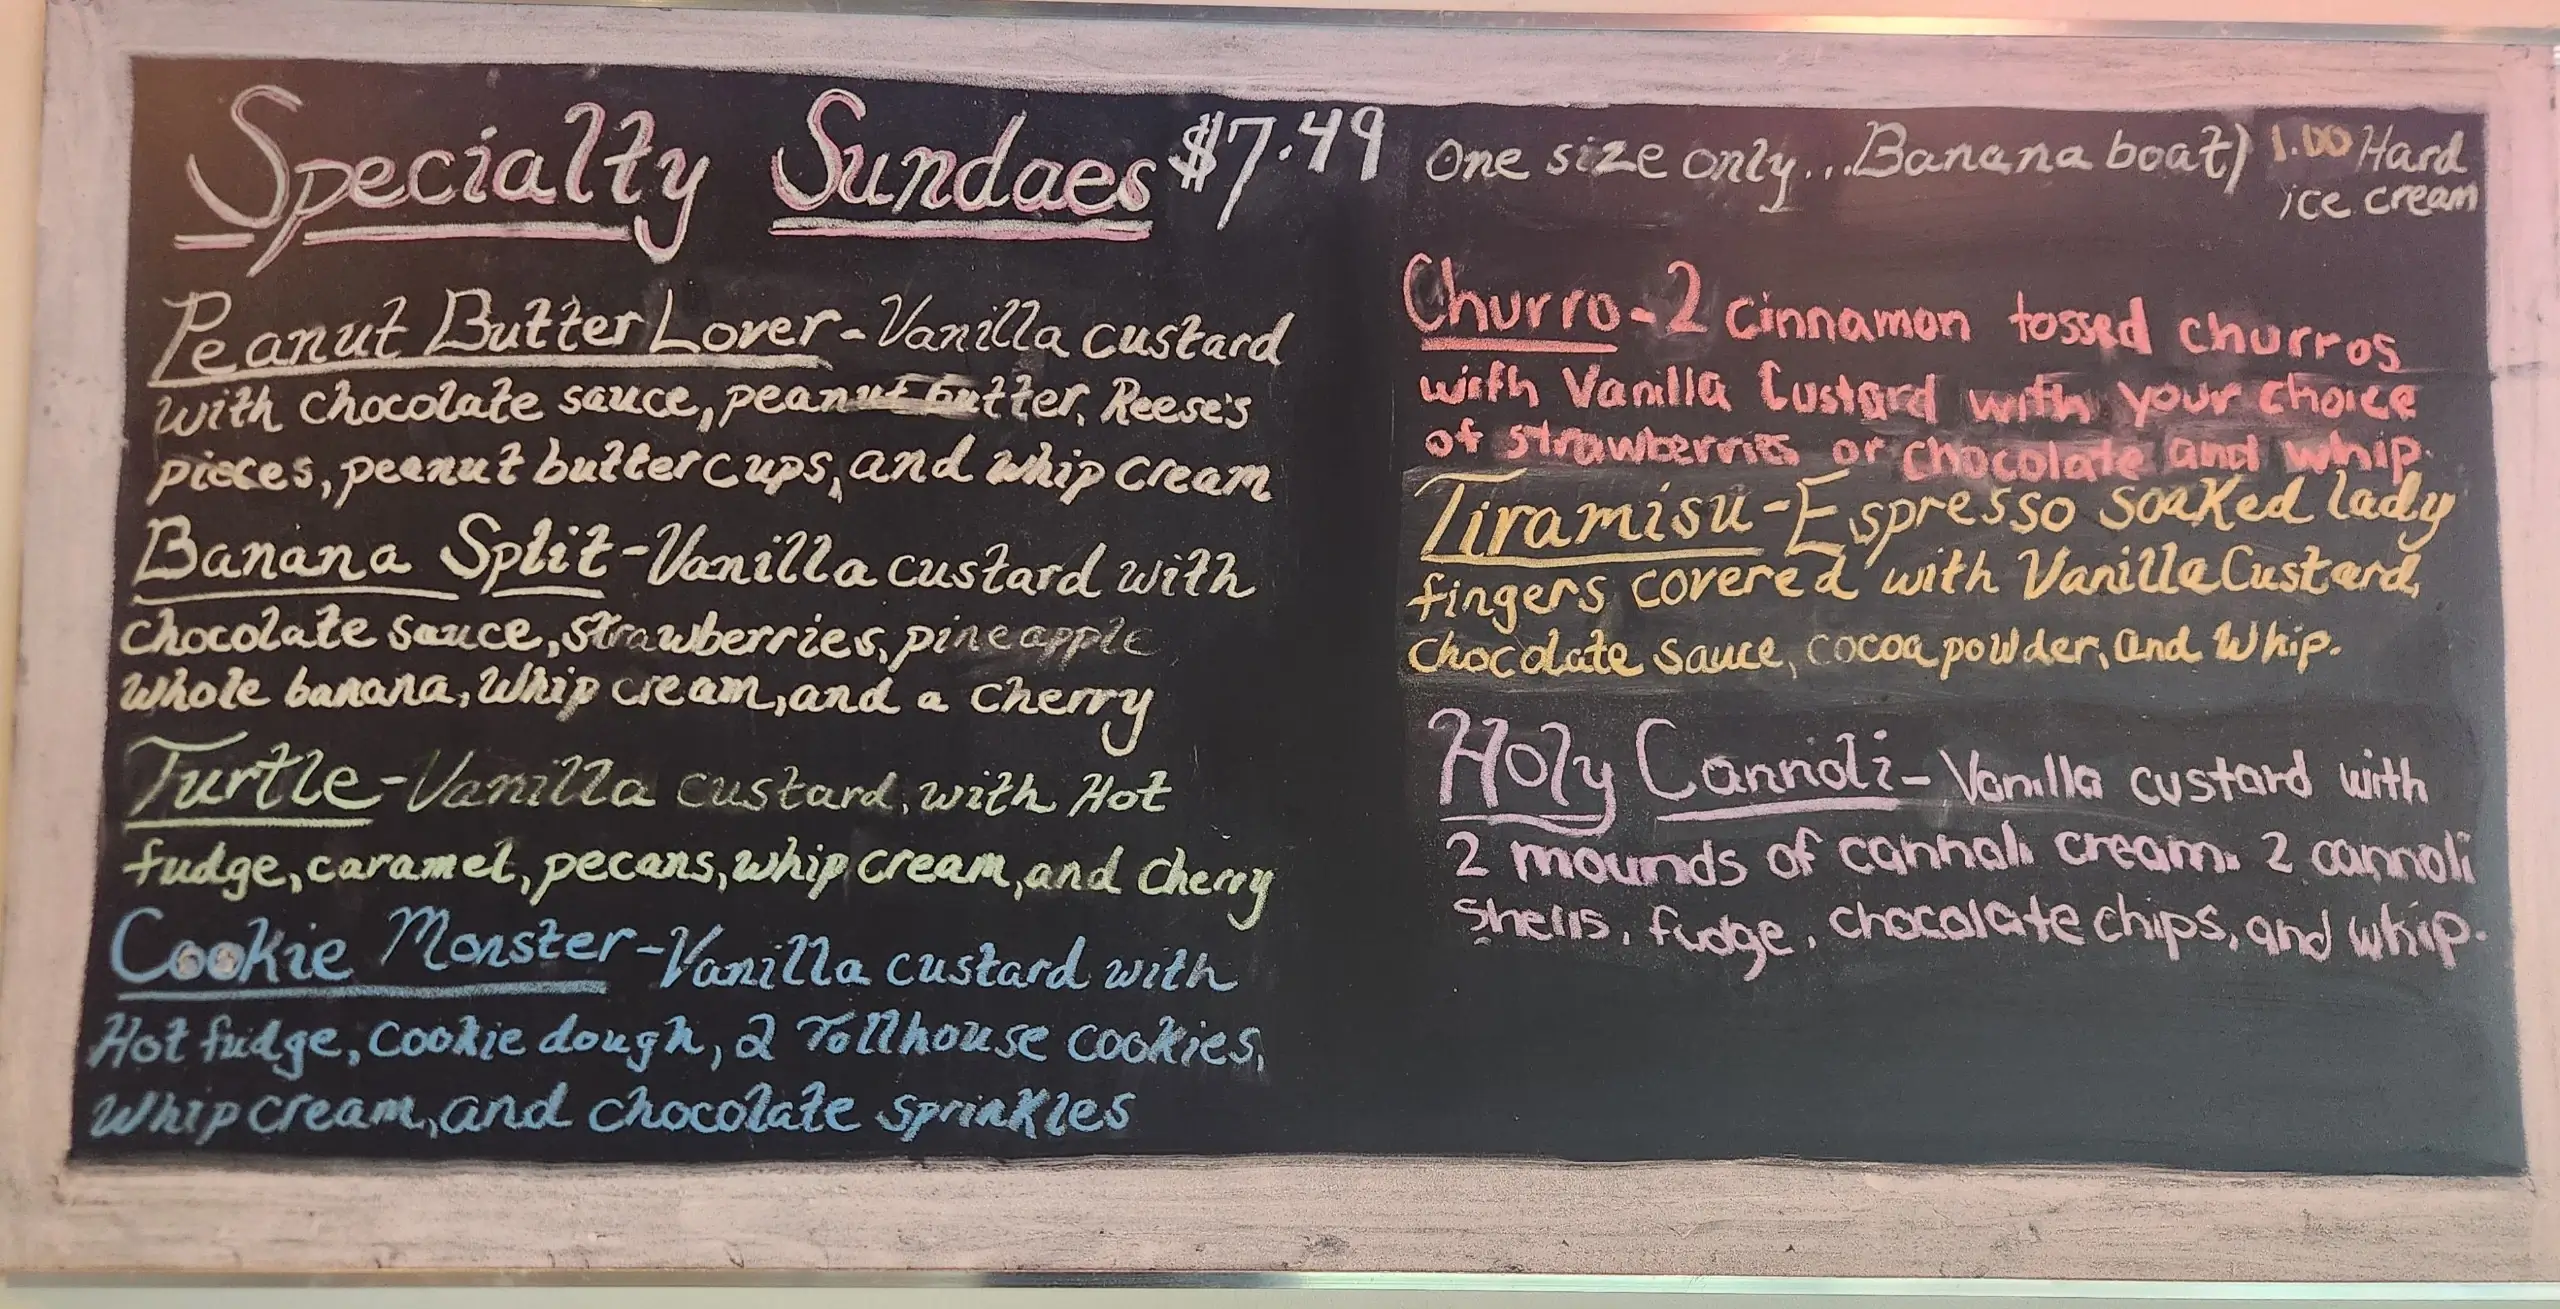 Specialty Sundaes $7.49
Peanut Butter Lover-Vanilla custard
with chocolate sauce, peanut butter, Reese's
pieces, peanut butter cups, and whip cream
Banana Split-Vanilla custard with
chocolate sauce, strawberries, pineapple
whole banana, whip cream, and a cherry
Turtle-Vanilla custard, with Hot
fudge, caramel, pecans, whip cream, and cherry
Cookie Monster-Vanilla custard with
Hot fudge, cookie dough, 2 Tollhouse cookies,
whip cream, and chocolate sprinkles
One size only...Banana boat) 1.00 Hard
ice cream
Churro-2 Cinnamon tossed churros
with Vanilla Custard with your choice
of strawberries or chocolate and whip.
Tiramisu-Espresso soaked lady
fingers covered with Vanilla Custard,
chocolate sauce, cocoa powder, and whip.
Holy Cannoli-Vanilla custard with
2 mounds of cannoli cream. 2 cannoli
shells, fudge, chocolate chips, and whip.